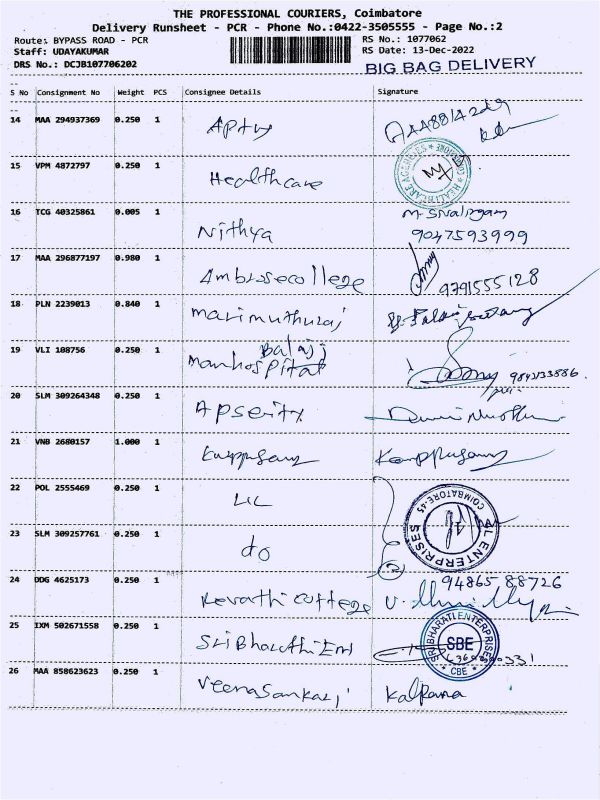 THE PROFESSIONAL COURIERS, Coimbatore
Delivery Runsheet - PCR - Phone No.:0422-3505555 - Page No.:2
Route: BYPASS ROAD - PCR
RS No.: 1077062
Staff: UDAYAKUMAR
RS Date: 13-Dec-2022
DRS No.: DCJB107706202
BIG BAG DELIVERY
S No Consignment No Weight PCS Consignee Details Signature
14 MAA 294937369 0.250 1
15 VPM 4872797 0.250 1 Healthcare
HEALTHCARE AGENCIES * COIMBATORE *
16 TCG 40325861 0.005 1 Nithya M. Sivalingam
9047593999
17 MAA 296877197 0.980 1 Ambrosecollege 9791555128
18 PLN 2239013 0.840 1 Marimuthuraj
19 VLI 108756 0.250 1 Balaji
Manhospital 9842133886
20 SLM 309264348 0.250 1
21 VNB 2680157 1.000 1 Karppusamy Karppusamy
22 POL 2555469 0.250 1 LIC
COIMBATORE-45
ENTERPRISES
23 SLM 309257761 0.250 1 do
24 DDG 4625173 0.250 1 Revathi cottage 94865 88726
25 IXM 502671558 0.250 1 Sri Bharathi Ent
SRI BHARATI ENTERPRISES
SBE
* CBE *
26 MAA 858623623 0.250 1 Veenasankarji Kalpana